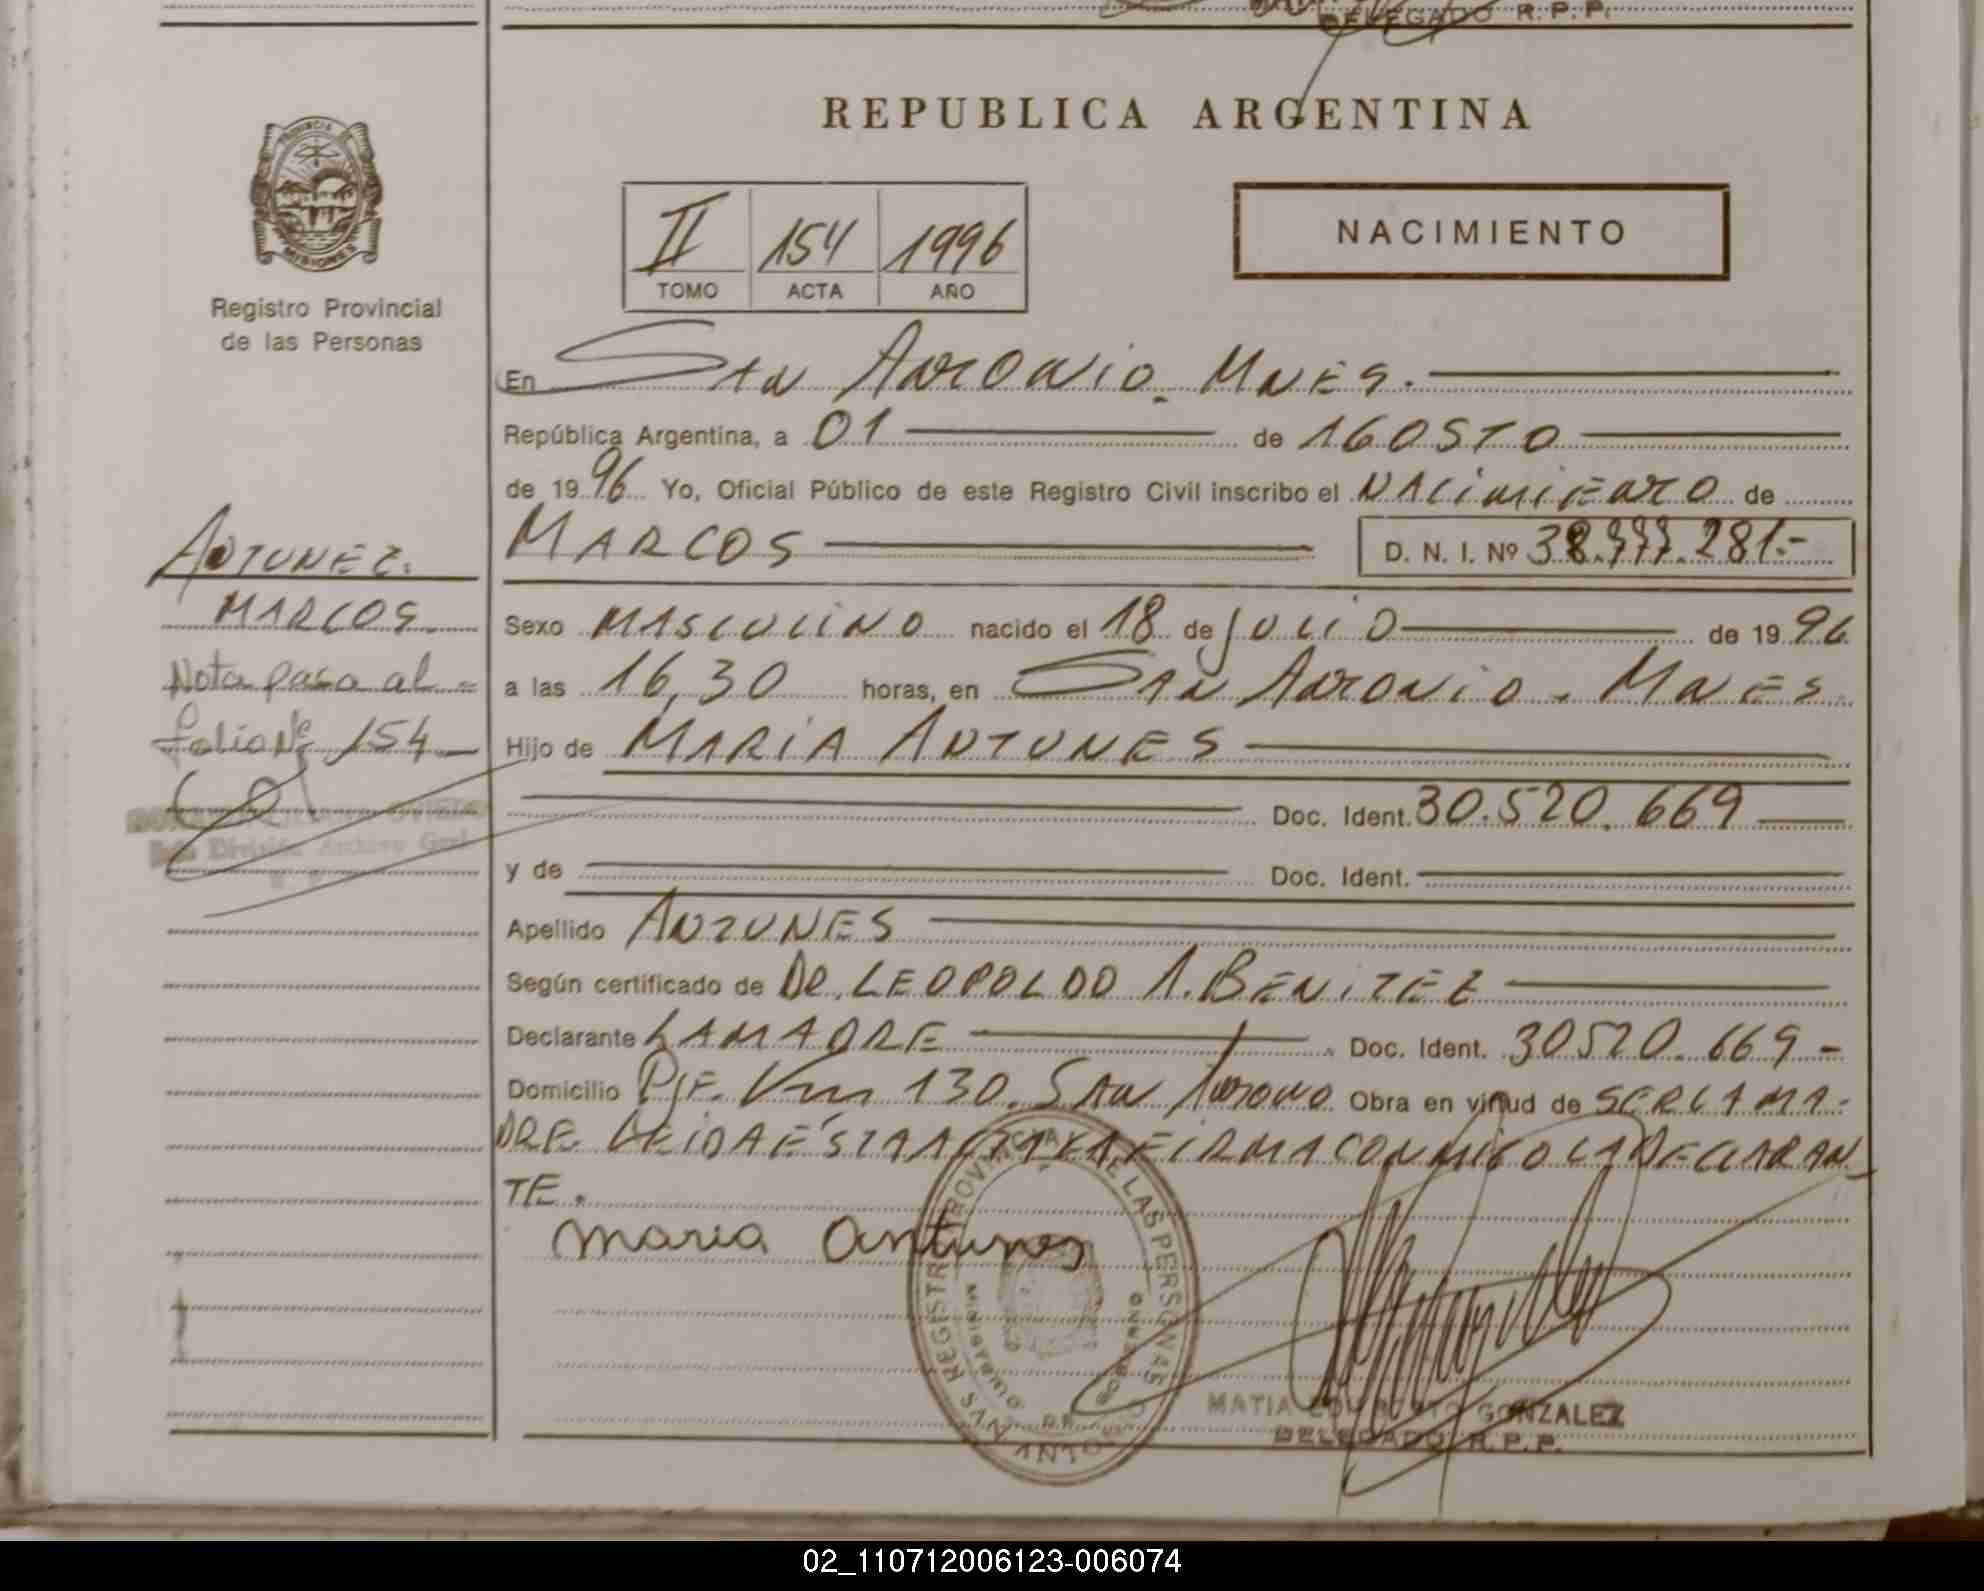 DELEGADO R.P.P.
REPUBLICA ARGENTINA
PROVINCIA DE
MISIONES
Registro Provincial
de las Personas
II 154 1996
TOMO ACTA AÑO
NACIMIENTO
En San Antonio - Mnes.
República Argentina, a 01 de Agosto
de 1996 Yo, Oficial Público de este Registro Civil inscribo el Nacimiento de
MARCOS D. N. I. Nº 38.777.281.-
Sexo MASCULINO nacido el 18 de JULIO de 1996
a las 16,30 horas, en San Antonio - Mnes.
Hijo de MARÍA ANTUNES
Doc. Ident. 30.520.669
y de Doc. Ident.
Apellido ANTUNES
Según certificado de DR. LEOPOLDO A. BENITEZ
Declarante LA MADRE Doc. Ident. 30520.669 -
Domicilio Pje. Km 130. San Antonio Obra en virtud de SER LA MA-
DRE LEIDA ÉSTA ACTA LA FIRMA CONMIGO LA DECLARAN
TE.
maria antunes
REGISTRO PROVINCIAL DE LAS PERSONAS
MINISTERIO GOBIERNO
SAN ANTONIO
GONZALEZ
DELEGADO R.P.P.
ANTUNEZ.
MARCOS
Nota pasa al =
folio Nº 154
División Archivo Gral
02_110712006123-006074